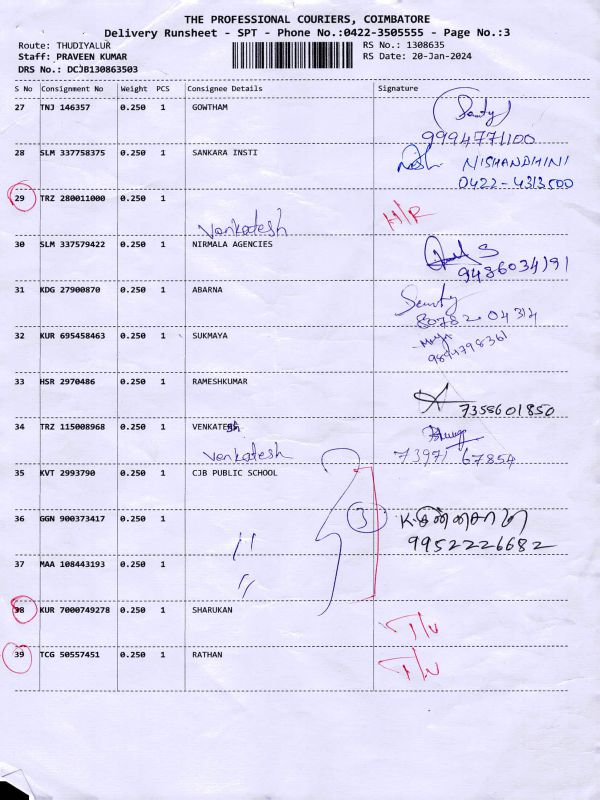 THE PROFESSIONAL COURIERS, COIMBATORE
Delivery Runsheet - SPT - Phone No.:0422-3505555 - Page No.:3
Route: THUDIYALUR RS No.: 1308635
Staff: PRAVEEN KUMAR RS Date: 20-Jan-2024
DRS No.: DCJB130863503
S No Consignment No Weight PCS Consignee Details Signature
27 TNJ 146357 0.250 1 GOWTHAM
9994771100
28 SLM 337758375 0.250 1 SANKARA INSTI NISHANDHINI
0422-4313500
29 TRZ 280011000 0.250 1 H/R
Venkatesh
30 SLM 337579422 0.250 1 NIRMALA AGENCIES
9486034191
31 KDG 27900870 0.250 1 ABARNA
80782 04314
32 KUR 695458463 0.250 1 SUKMAYA
9894798361
33 HSR 2970486 0.250 1 RAMESHKUMAR
7358601850
34 TRZ 115008968 0.250 1 VENKATESH
Venkatesh 73971 67854
35 KVT 2993790 0.250 1 CJB PUBLIC SCHOOL
36 GGN 900373417 0.250 1 3
" 9952226682
37 MAA 108443193 0.250 1
"
38 KUR 7000749278 0.250 1 SHARUKAN
T/N
39 TCG 50557451 0.250 1 RATHAN
T/N